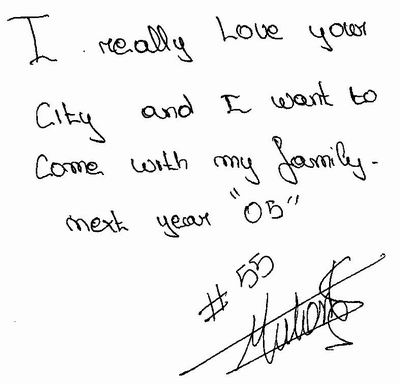 I really Love your
City and I want to
Come with my family.
next year "05"
#55